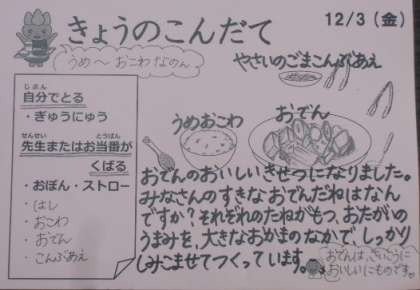 きょうのこんだて
12/3(金)
うめ〜おこわなのん
やさいのごまこんぶあえ
じぶん
自分でとる
・ぎゅうにゅう
せんせい とうばん
先生またはお当番が
くばる
・おぼん・ストロー
・はし
・おこわ
・おでん
・こんぶあえ
うめおこわ
おでん
おでんのおいしいきせつになりました。
みなさんのすきなおでんだねはなん
ですか?それぞれのたねがもつ、おたがいの
うまみを、大きなおかまのなかで、しっかり
しみこませてつくっています。
おでんは、さいこうに
おいしいにものです。